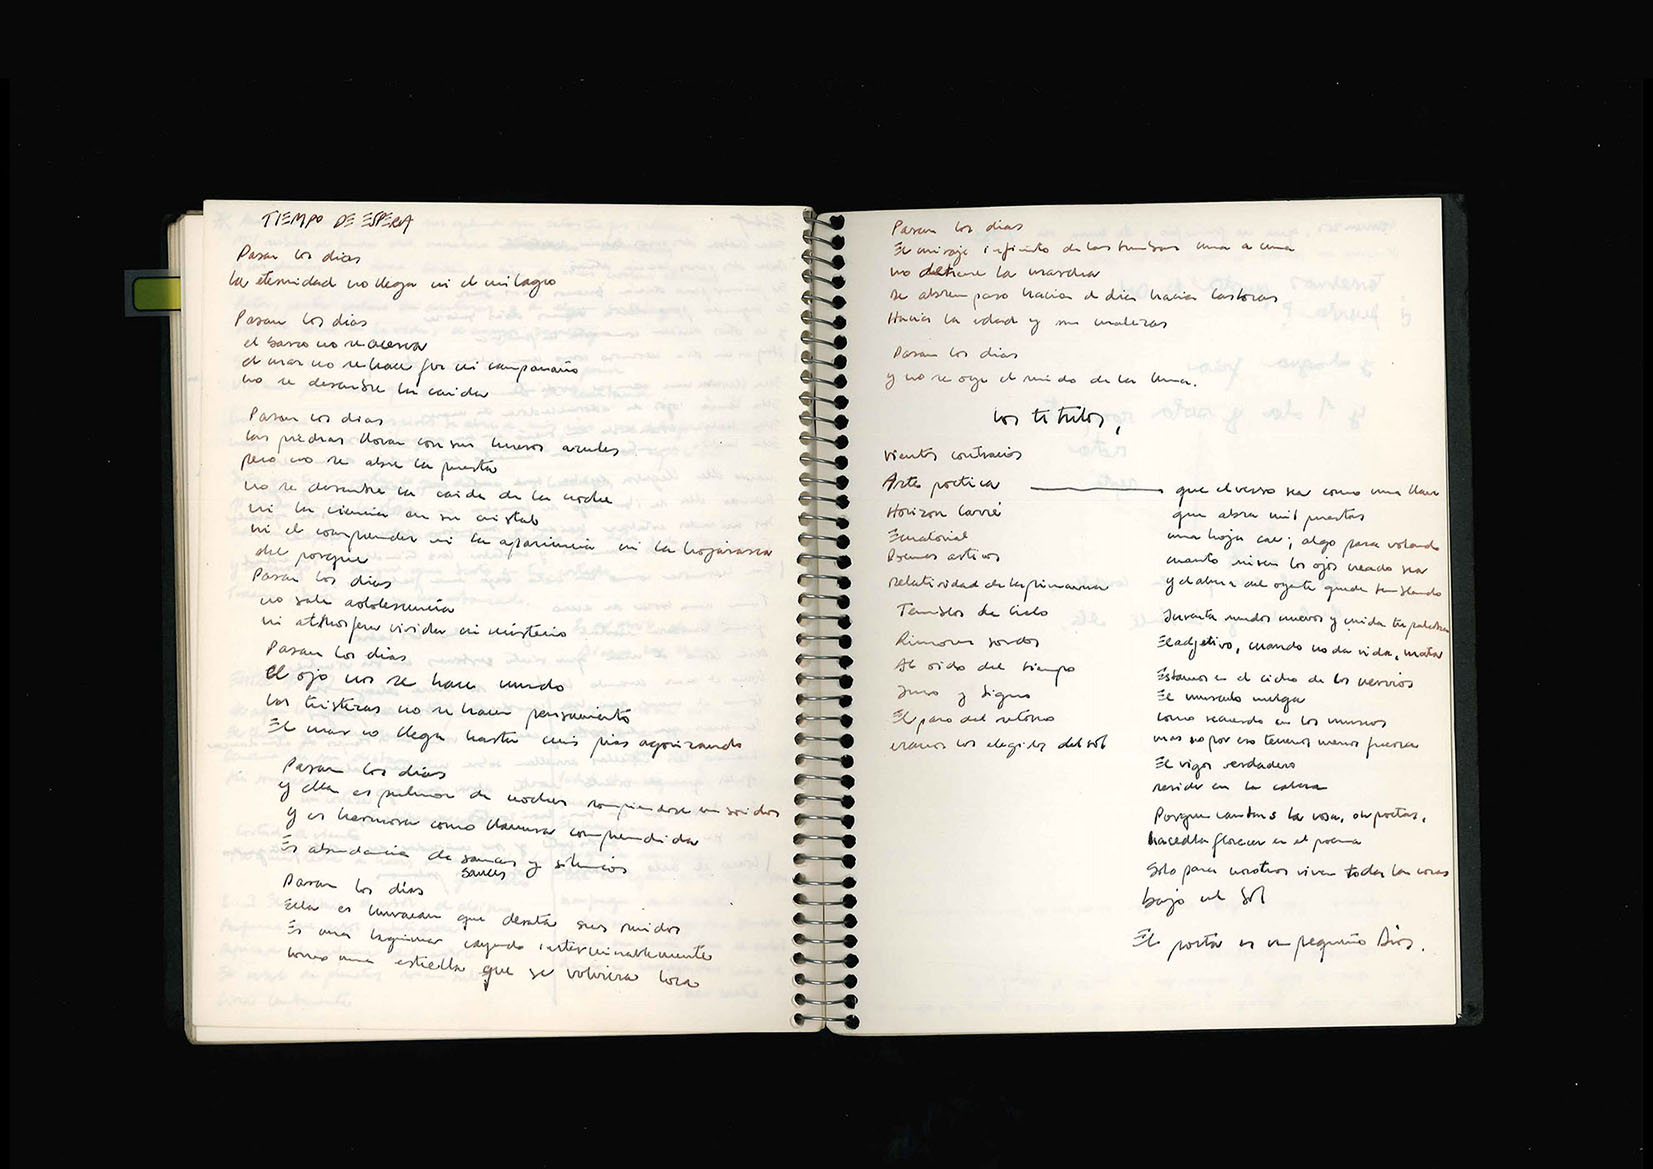 TIEMPO DE ESPERA
Pasan los dias
la eternidad no llega ni el milagro
Pasan los dias
el barco no se acerca
el mar no se hace flor ni campanario
no se descubre la caida
Pasan los dias
las piedras lloran con sus huesos azules
pero no se abre la puerta
no se descubre la caida de la noche
ni la ciencia en su cristal
ni el comprender ni la apariencia ni la hojarasca
del porque
Pasan los dias
no sale adolescencia
ni atmosfera vivida ni misterio
Pasan los dias
El ojo no se hace mundo
las tristezas no se hacen pensamiento
El mar no llega hasta mis pies agonizando
Pasan los dias
y ella es pulmon de noches rompiendose en sonidos
y es hermosa como llanura comprendida
Es abundancia de sauces y silencios
sauces
Pasan los dias
Ella es huracan que desata sus ruidos
Es una lagrima cayendo interminablemente
como una estrella que se volviera loca
Pasan los dias
El miraje infinito de las tumbas una a una
no detiene la marcha
se abren paso hacia el dia hacia las horas
Hacia la edad y sus malezas
Pasan los dias
y no se oye el ruido de la luna.
los titulos,
vientos contrarios
Arte poetica
Horizon Carré
Ecuatorial
Poemas articos
relatividad de la primavera
Temblor de Cielo
Rumores sordos
Al oido del tiempo
Juro y Signo
El paso del retorno
eramos los elegidos del sol
que el verso sea como una llave
que abra mil puertas
una hoja cae; algo pasa volando
cuanto miren los ojos creado sea
y el alma del oyente quede temblando
Inventa mundos nuevos y cuida tu palabra
El adjetivo, cuando no da vida, mata
Estamos en el ciclo de los nervios
El musculo cuelga
como recuerdo en los museos
mas no por eso tenemos menos fuerza
El vigor verdadero
reside en la cabeza
Porque cantais la rosa, oh poetas,
hacedla florecer en el poema
Solo para nosotros viven todas las cosas
bajo el Sol
El poeta es un pequeño Dios.